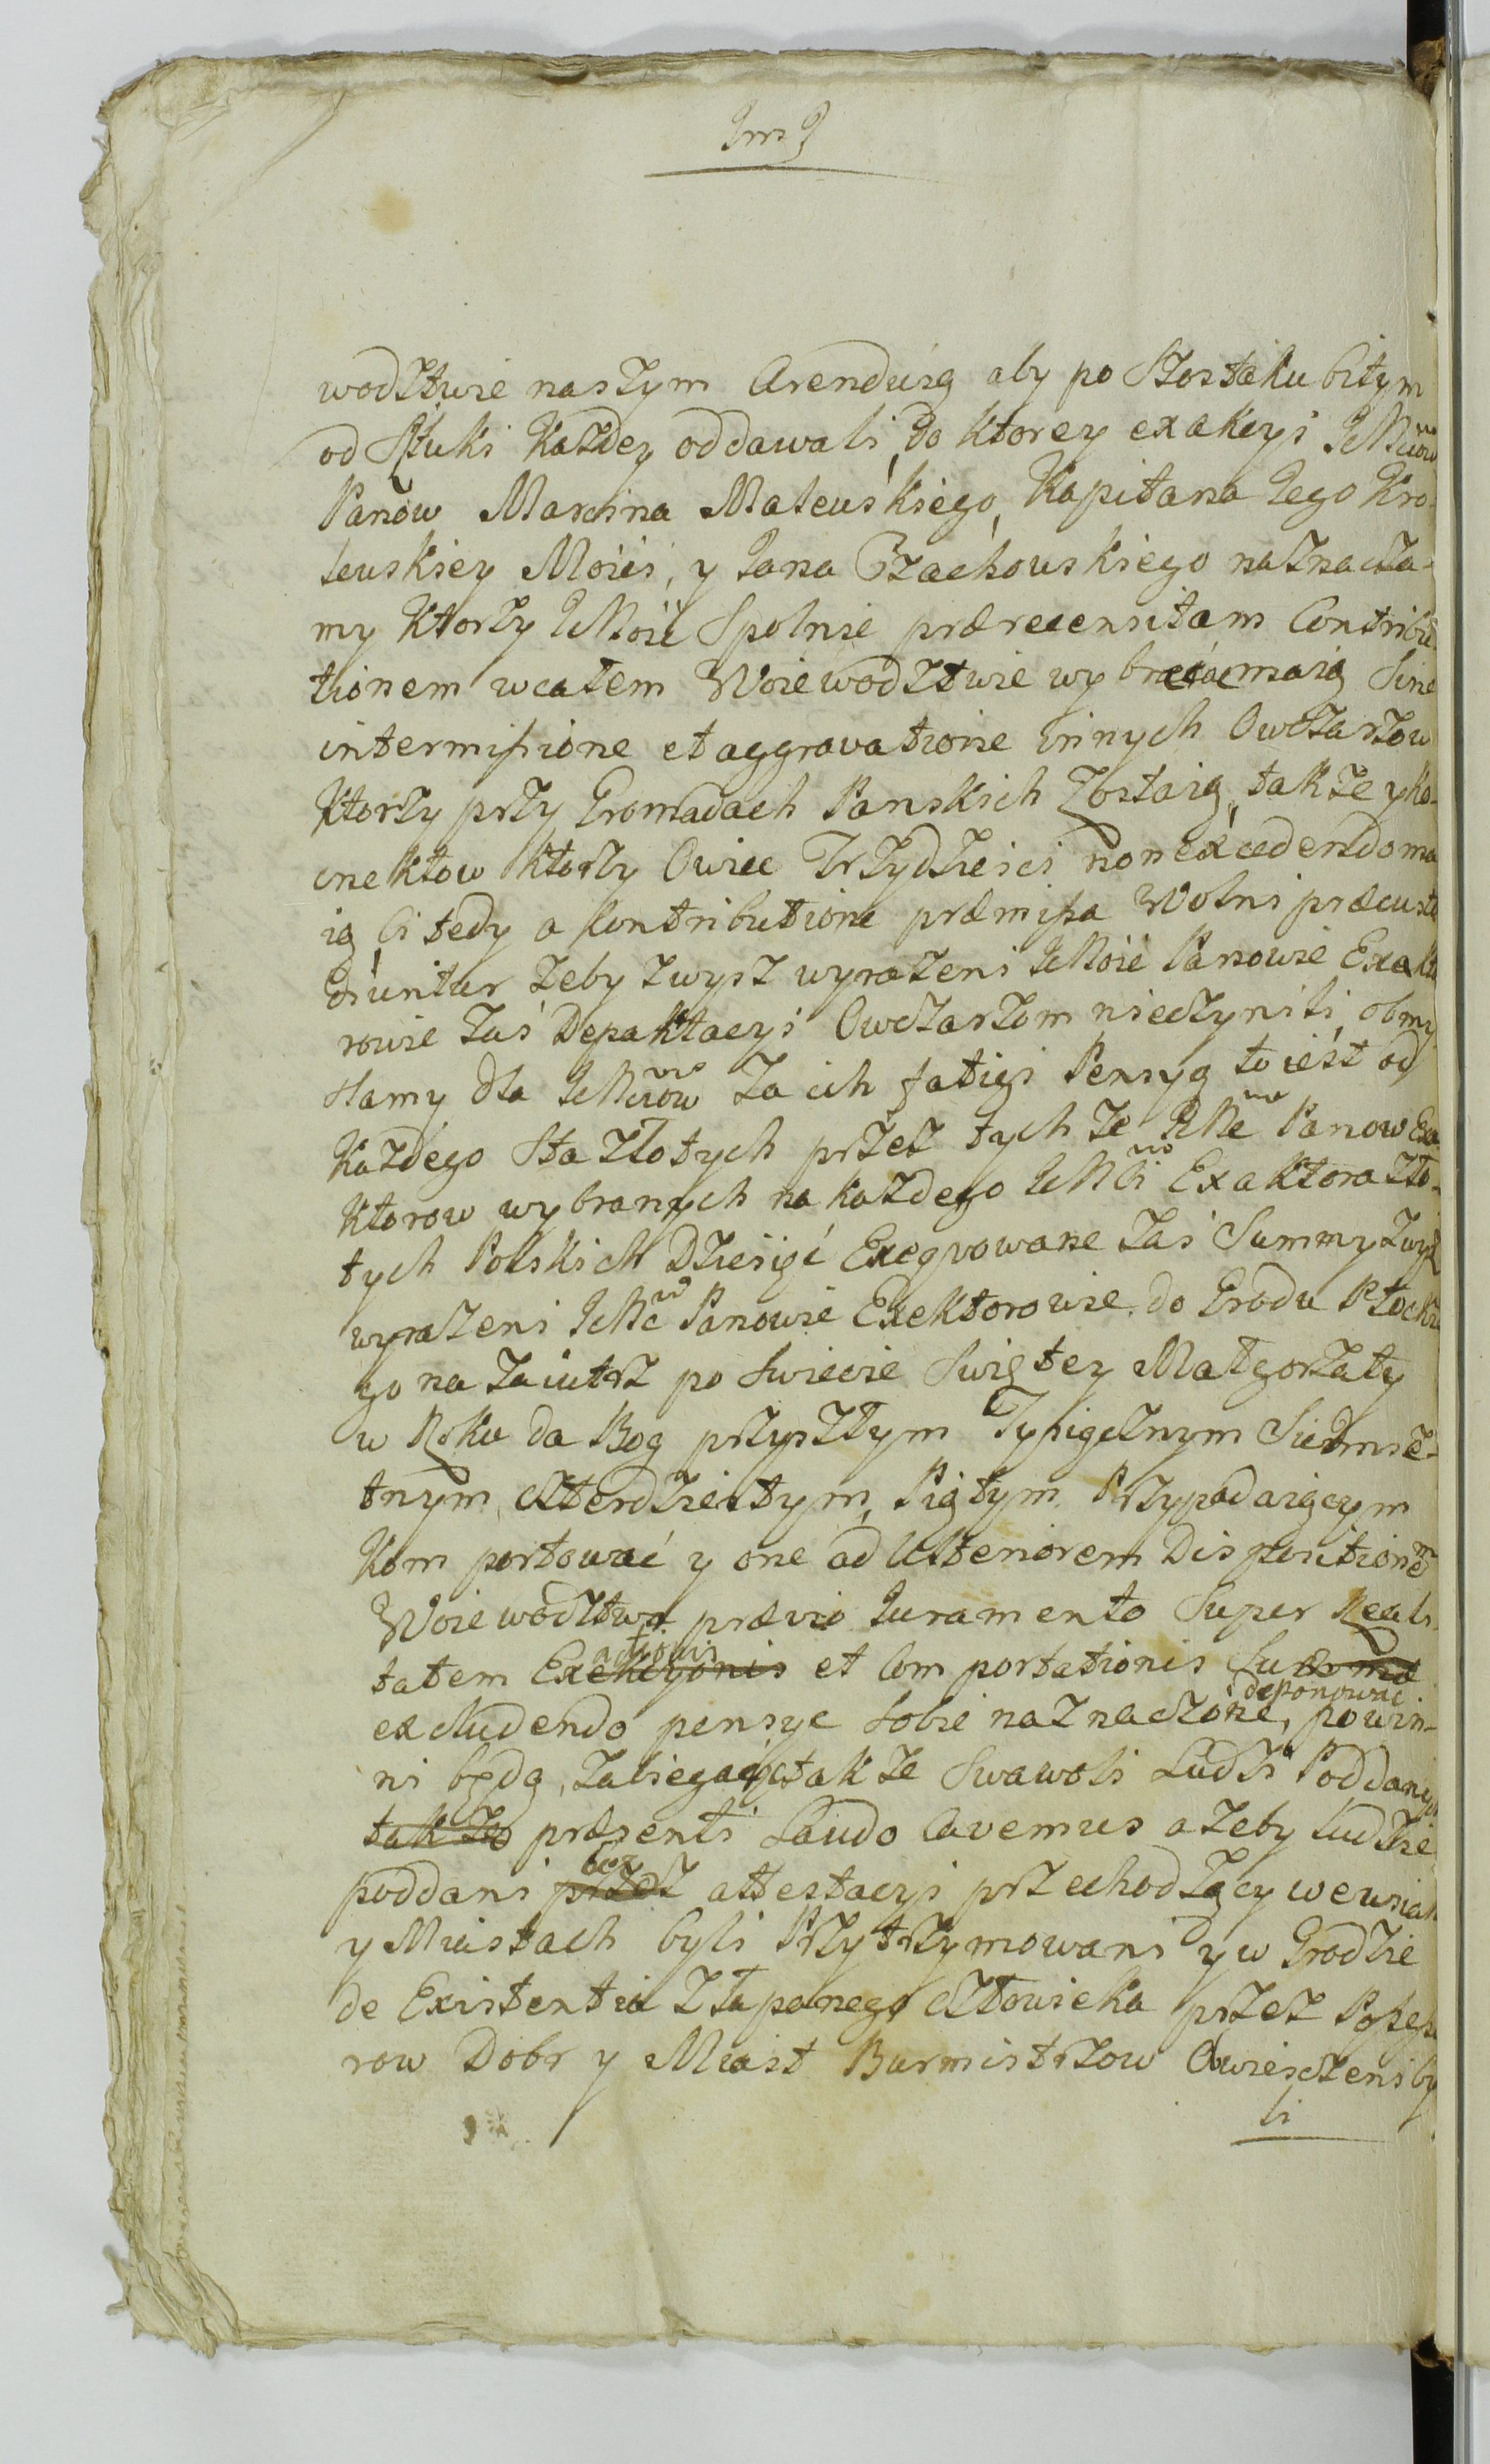 wodztwie naszym Arenduią aby po Szostaku bitym
od Sztuki Kazdey oddawali, do ktorey exakcyi IchMciow
Panow Marcina Mateuskiego, Kapitana Jego Kro-
leuskiey Mości, y Jana Czachouskiego naznacza-
my Ktorzy IchMość Spolnie prærecensitam Contribu-
tionem w całem Woiewodztwie wybraćmaią Sine
intermissione et aggravatione innych Owczarzow
Ktorzy przy Gromadach Panskich Zostaią, takze y Ko-
ktorzy Owiec Trzydziesci non excedendo ma-
ią Ci tedy a Contributione præmissa Wolni præcusto
diuntur zeby zwysz wyrazeni IchMość Panowie Exakto
rowie zas Depaktacyi Owczarzom nieczynili, obmy
slamy dla IchMciow za ich fatigi Pensyą to iest od
Kazdego Sta Złotych przez tychze IchMc Panow Exa
ktorow wybranych na kazdego IchMci Exaktora Zło-
tych Polskich Dziesięć Exeqvowane zas Summy zwysz
wyrazeni IchMc Panowie Exektorowie do Grodu Płockie
go na zaiutrz po Swięcie Swiętey Małgorzaty
w Roku da Bog przyszłym Tysiącznym Siedmse-
tnym, czterdziestym, Piątym Przypadaiącym
Kom portować y one ad Ulteriorem Dispositionem
Woiewodztwa prævio Juramento Super Reali-
tatem Exekcyonis actionis et Comportationis Summæ
excludendo pensye sobie naznaczone, deponować powin-
ni będą, zabiegaiąc takze Swawoli Ludzi Poddanych
takze præsenti Laudo Cavemus azeby ludzie
poddani przez bez attestacyi przechodzący we wsiach
y Miastach byli Przytrzymowani y w Grodzie
de Existentia złapanego człowieka przez Possesso
row Dobr y Miast Burmistrzow Owiesczeni by
li